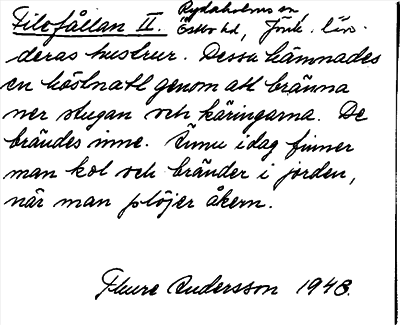 Filofållan II. Rydaholms sn
Östbo hd, Jönk. län.
deras hustrur. Dessa hämnades
en höstnatt genom att bränna
ner stugan och käringarna. De
brändes inne. Ännu idag finner
man kol och bränder i jorden,
när man plöjer åkern.
Thure Andersson 1948.